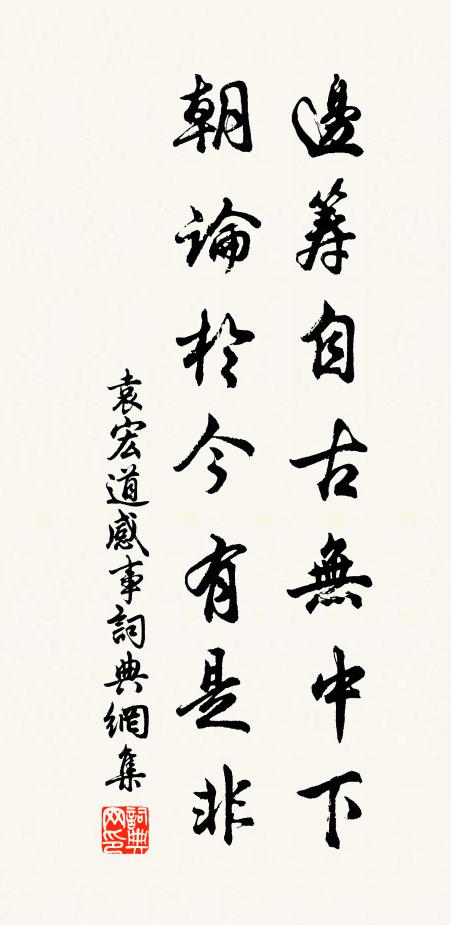 邊籌自古無中下
朝論於今有是非
袁宏道感事詞典網集
詞典網印